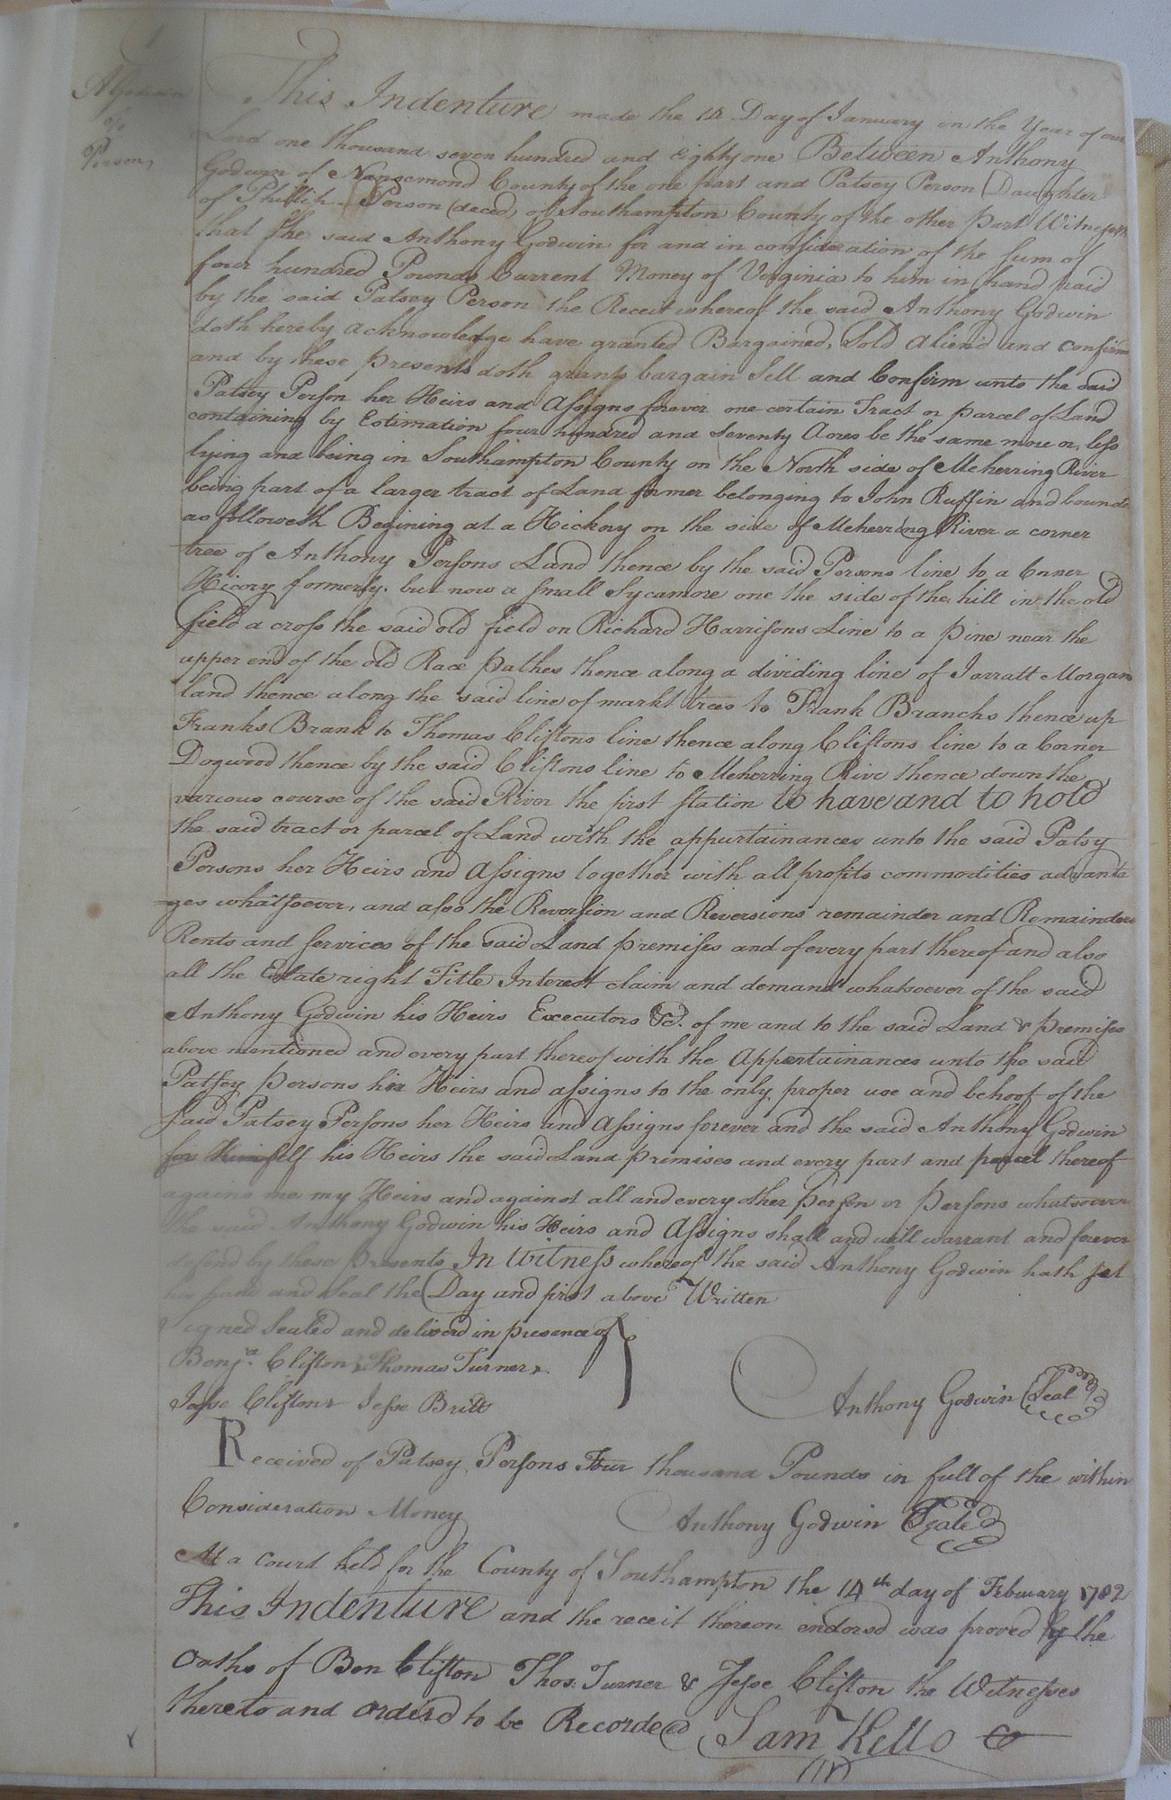 1
AGodwin
to
Person,
This Indenture made the 14 Day of January in the Year of our
Lord one thousand seven hundred and Eighty one Between Anthony
Godwin of Nansemond County of the one part and Patsey Person Daughter
of Phillip Person (deced) of Southampton County of the other part Witnesseth
that the said Anthony Godwin for and in consideration of the sum of
four hundred Pounds Current Money of Virginia to him in hand paid
by the said Patsey Person the Receit whereof the said Anthony Godwin
doth hereby acknowledge have granted Bargained, Sold aliend and confirm
and by these presents doth grant bargain Sell and Confirm unto the said
Patsey Person her Heirs and Assigns forever one certain Tract or parcel of Land
containing by Estimation four hundred and Seventy Acres be the same more or less
lying and being in Southampton County on the North side of Meherring River
being part of a larger tract of Land former belonging to John Ruffin and bounds
as followeth Begining at a Hickory on the side of Meherring River a corner
tree of Anthony Persons Land thence by the said Persons line to a Corner
Hicory formerly but now a small Sycamore one the side of the hill in the old
field a cross the said old field on Richard Harrisons Line to a pine near the
upper end of the old Race pathes thence along a dividing line of Jarratt Morgan
land thence along the said line of markt trees to Frank Branchs thence up
Franks Brank to Thomas Cliftons line thence along Cliftons line to a Corner
Dogwood thence by the said Cliftons line to Meherring Rive thence down the
various course of the said River the first station to have and to hold
the said tract or parcel of Land with the appurtainances unto the said Patsy
Persons her Heirs and Assigns together with all profits commodities advanta
ges whatsoever, and also the Reversion and Reversions remainder and Remainders
Rents and services of the said Land premises and of every part thereof and also
all the Estate right Title Interest claim and demand whatsoever of the said
Anthony Godwin his Heirs Executors &c. of me and to the said Land & premises
above mentioned and every part thereof with the Appertainances unto the said
Patsey persons her Heirs and assigns to the only proper use and behoof of the
said Patsey Persons her Heirs and Assigns forever and the said Anthony Godwin
for Himself his Heirs the said Land premises and every part and parcel thereof
against me my Heirs and against all and every other person or persons whatsoever
the said Anthony Godwin his Heirs and Assigns shall and will warrant and forever
defend by these presents In Witness whereof the said Anthony Godwin hath set
his hand and Seal the Day and first above Written
Signed Sealed and deliverd in presence of
Benja. Clifton, Thomas Turner,
Jesse Clifton Jesse Britt
Anthony Godwin Seal
Received of Patsey Persons Four thousand Pounds in full of the within
Consideration Money
Anthony Godwin Seale
At a court held for the County of Southampton the 14th day of February 1782
This Indenture and the receit thereon indorsd was proved by the
Oaths of Ben Clifton Thos. Turner & Jesse Clifton the Witnesses
thereto and orderd to be Recorded
Sam Kello